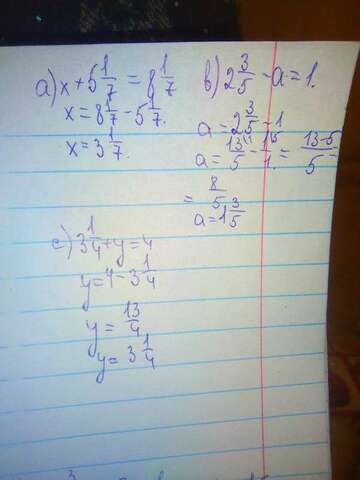 a) x + 5 1/7 = 8 1/7
x = 8 1/7 - 5 1/7.
x = 3 1/7.
b) 2 3/5 - a = 1.
a = 2 3/5 - 1
a = 13/5 - 1/1 = 13-5/5 =
= 8/5
a = 1 3/5
c) 3 1/4 + y = 4
y = 4 - 3 1/4
y = 13/4
y = 3 1/4